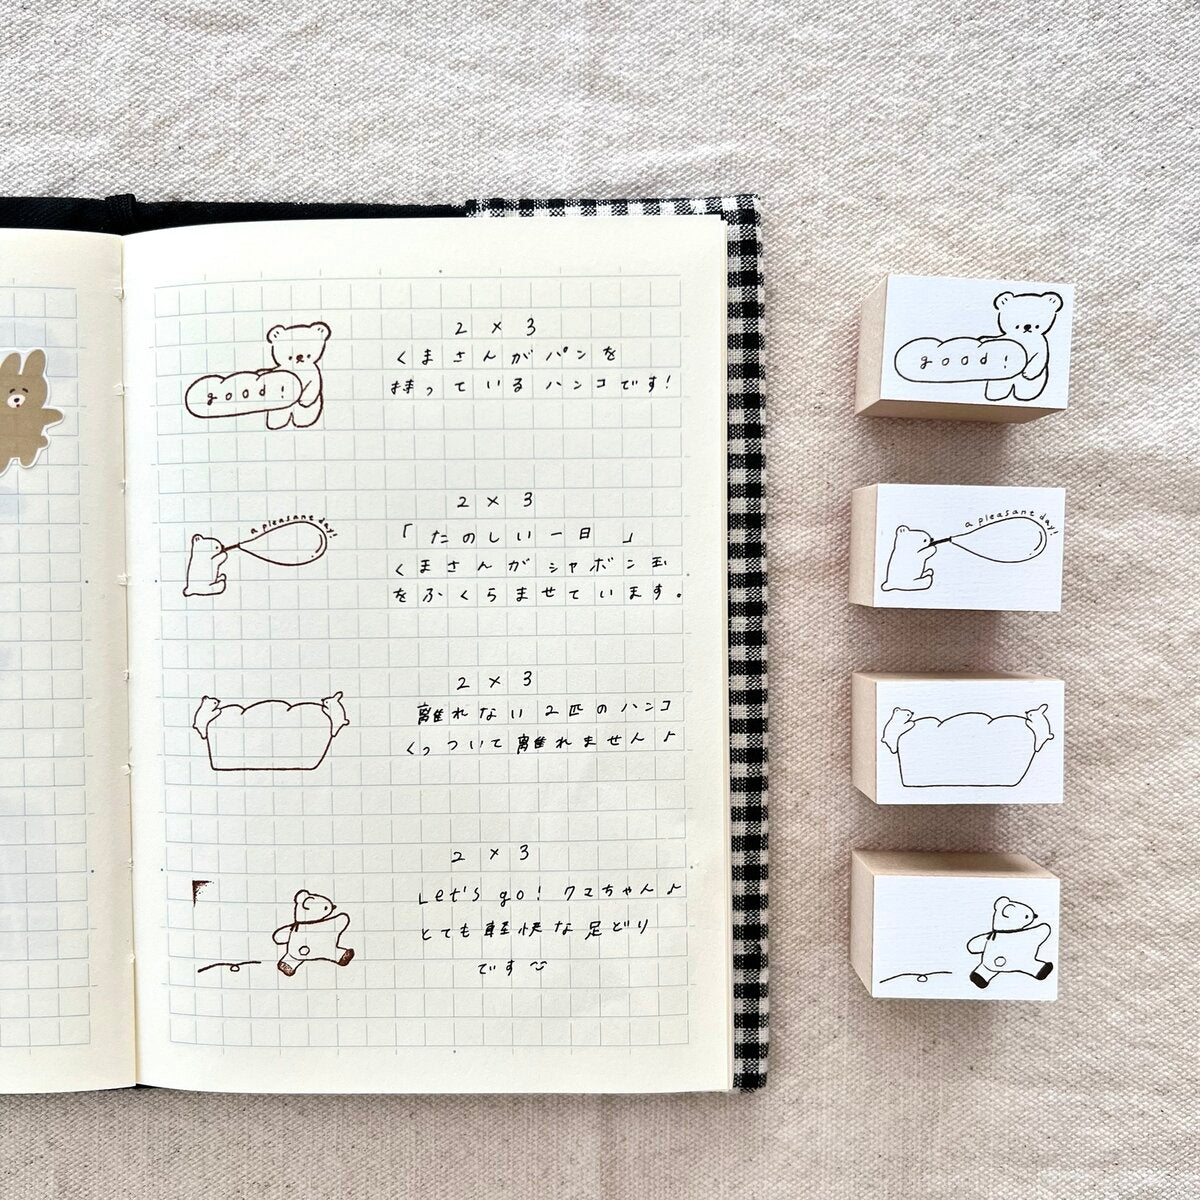 2×3
くまさんがパンを
持っているハンコです!
good!
2×3
「たのしい一日」
くまさんがシャボン玉
をふくらませています。
a pleasant day!
2×3
離れない2匹のハンコ
くっついて離れません♪
2×3
Let's go! クマちゃん♪
とても軽快な足どり
です
good!
a pleasant day!